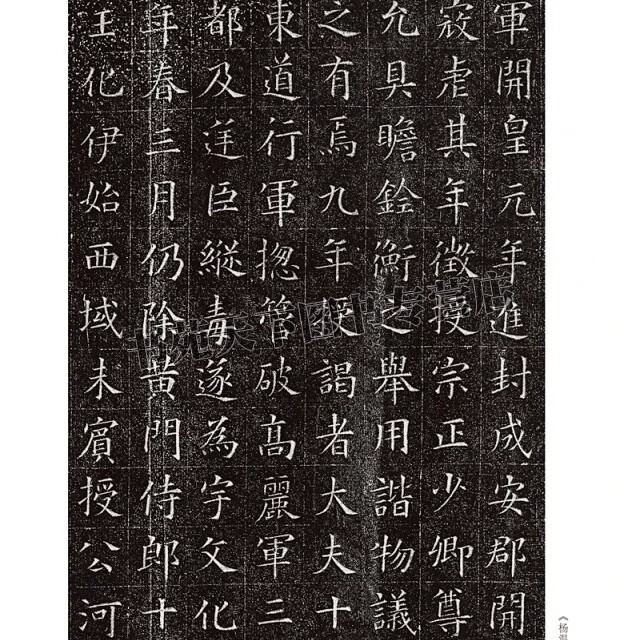 軍開皇元年進封成安郡開
寇虐其年徵授宗正少卿尊
允具瞻銓衡之舉用諧物議
之有焉九年授謁者大夫十
東道行軍揔管破高麗軍三
都及逆臣縱毒遂為宇文化
年春三月仍除黃門侍郎十
王化伊始西域未賓授公河
图书专营店
《杨